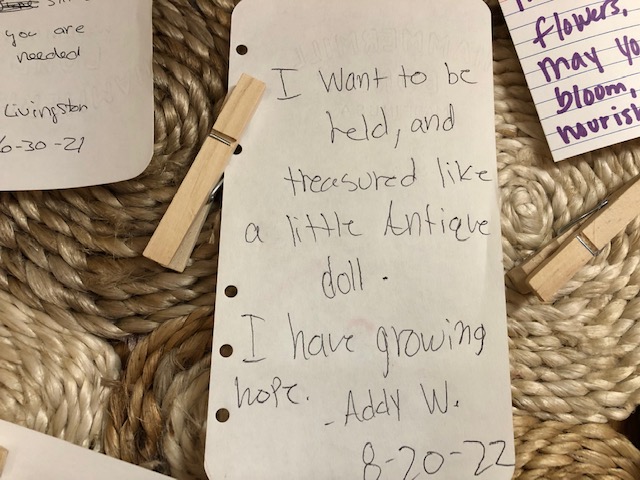 you are
needed
Livingston
6-30-21
I want to be
held, and
treasured like
a little Antique
doll.
I have growing
hope.
-Addy W.
8-20-22
flowers,
may yo
bloom,
nourish